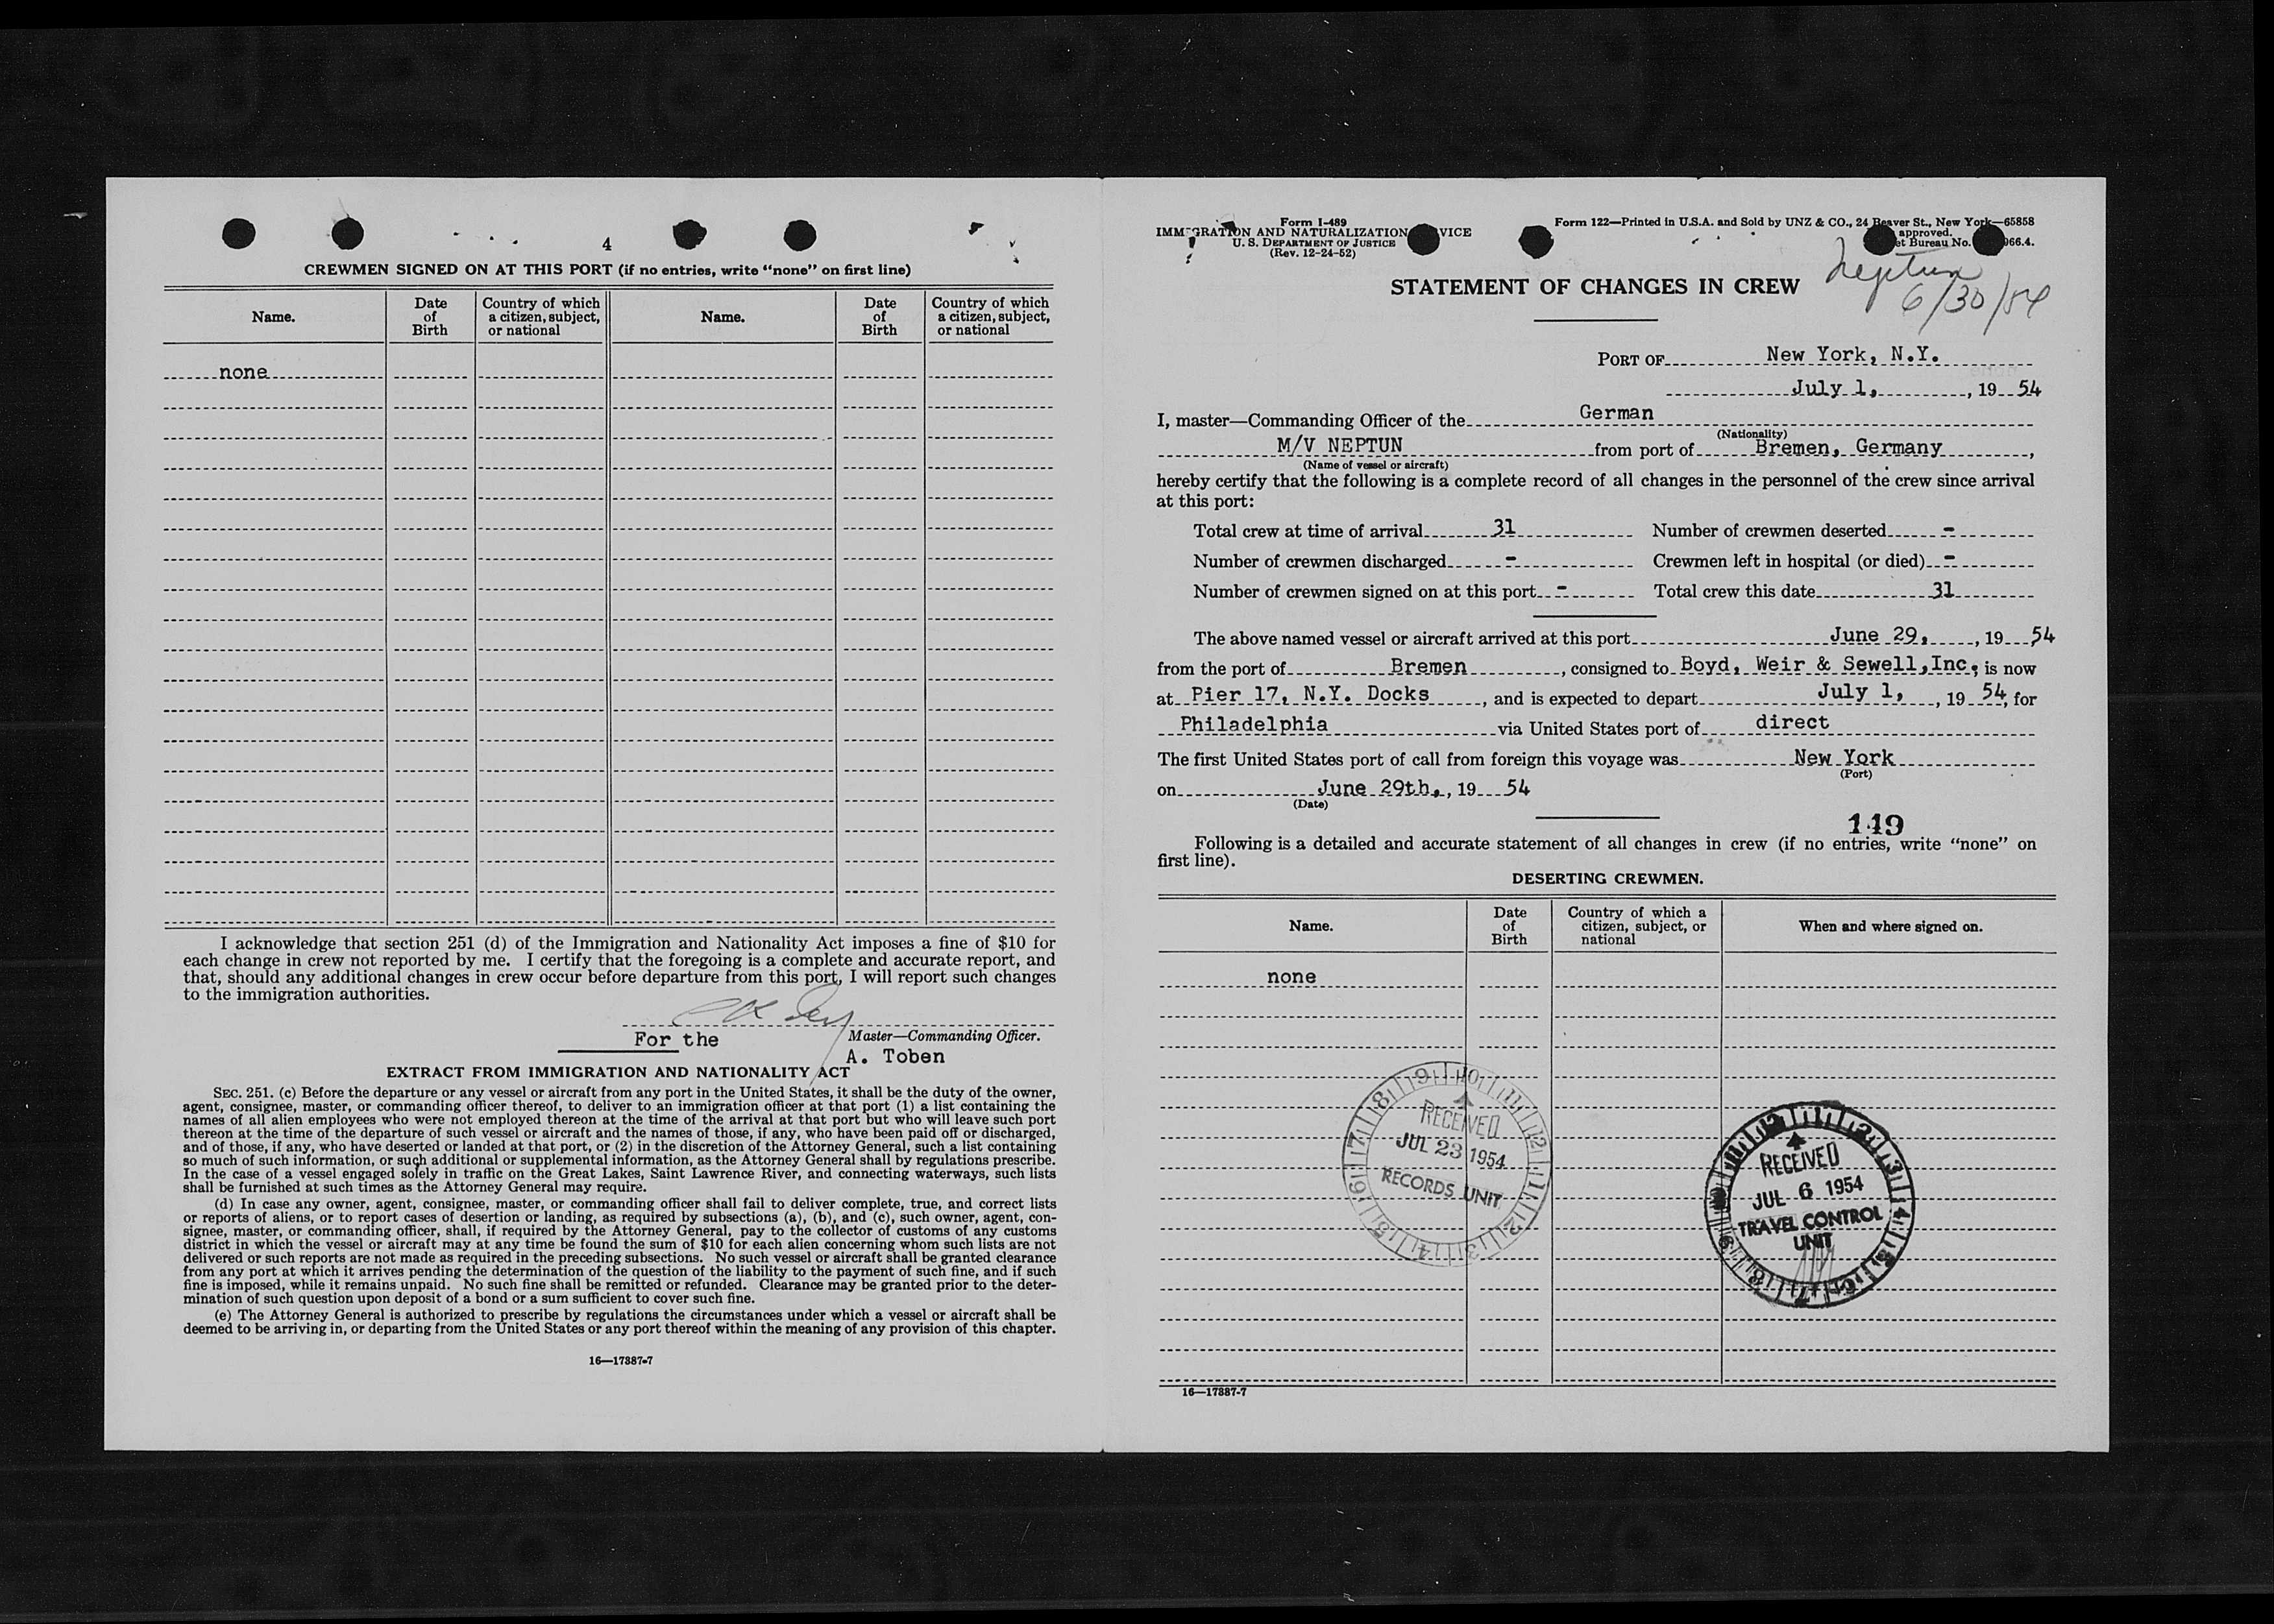 4
CREWMEN SIGNED ON AT THIS PORT (if no entries, write “none” on first line)
Name.
Date of Birth
Country of which a citizen, subject, or national
Name.
Date of Birth
Country of which a citizen, subject, or national
none
I acknowledge that section 251 (d) of the Immigration and Nationality Act imposes a fine of $10 for
each change in crew not reported by me. I certify that the foregoing is a complete and accurate report, and
that, should any additional changes in crew occur before departure from this port, I will report such changes
to the immigration authorities.
For the Master—Commanding Officer.
A. Toben
EXTRACT FROM IMMIGRATION AND NATIONALITY ACT
SEC. 251. (c) Before the departure or any vessel or aircraft from any port in the United States, it shall be the duty of the owner,
agent, consignee, master, or commanding officer thereof, to deliver to an immigration officer at that port (1) a list containing the
names of all alien employees who were not employed thereon at the time of the arrival at that port but who will leave such port
thereon at the time of the departure of such vessel or aircraft and the names of those, if any, who have been paid off or discharged,
and of those, if any, who have deserted or landed at that port, or (2) in the discretion of the Attorney General, such a list containing
so much of such information, or such additional or supplemental information, as the Attorney General shall by regulations prescribe.
In the case of a vessel engaged solely in traffic on the Great Lakes, Saint Lawrence River, and connecting waterways, such lists
shall be furnished at such times as the Attorney General may require.
(d) In case any owner, agent, consignee, master, or commanding officer shall fail to deliver complete, true, and correct lists
or reports of aliens, or to report cases of desertion or landing, as required by subsections (a), (b), and (c), such owner, agent, con-
signee, master, or commanding officer, shall, if required by the Attorney General, pay to the collector of customs of any customs
district in which the vessel or aircraft may at any time be found the sum of $10 for each alien concerning whom such lists are not
delivered or such reports are not made as required in the preceding subsections. No such vessel or aircraft shall be granted clearance
from any port at which it arrives pending the determination of the question of the liability to the payment of such fine, and if such
fine is imposed, while it remains unpaid. No such fine shall be remitted or refunded. Clearance may be granted prior to the deter-
mination of such question upon deposit of a bond or a sum sufficient to cover such fine.
(e) The Attorney General is authorized to prescribe by regulations the circumstances under which a vessel or aircraft shall be
deemed to be arriving in, or departing from the United States or any port thereof within the meaning of any provision of this chapter.
16—17887-7
Form I-489
IMMIGRATION AND NATURALIZATION SERVICE
U. S. DEPARTMENT OF JUSTICE
(Rev. 12-24-52)
Form 122—Printed in U.S.A. and Sold by UNZ & CO., 24 Beaver St., New York—65858
approved.
et Bureau No. 966.4.
Neptun
6/30/54
STATEMENT OF CHANGES IN CREW
PORT OF New York, N.Y.
July 1, , 19 54
I, master—Commanding Officer of the German
(Nationality)
M/V NEPTUN from port of Bremen, Germany ,
(Name of vessel or aircraft)
hereby certify that the following is a complete record of all changes in the personnel of the crew since arrival
at this port:
Total crew at time of arrival 31 Number of crewmen deserted -
Number of crewmen discharged - Crewmen left in hospital (or died) -
Number of crewmen signed on at this port - Total crew this date 31
The above named vessel or aircraft arrived at this port June 29, , 19 54
from the port of Bremen , consigned to Boyd, Weir & Sewell,Inc, is now
at Pier 17, N.Y. Docks , and is expected to depart July 1, , 19 54, for
Philadelphia via United States port of direct
The first United States port of call from foreign this voyage was New York
(Port)
on June 29th., 19 54
(Date)
149
Following is a detailed and accurate statement of all changes in crew (if no entries, write “none” on
first line).
DESERTING CREWMEN.
Name.
Date of Birth
Country of which a citizen, subject, or national
When and where signed on.
none
RECEIVED
JUL 23 1954
RECORDS UNIT
RECEIVED
JUL 6 1954
TRAVEL CONTROL
UNIT
16—17887-7